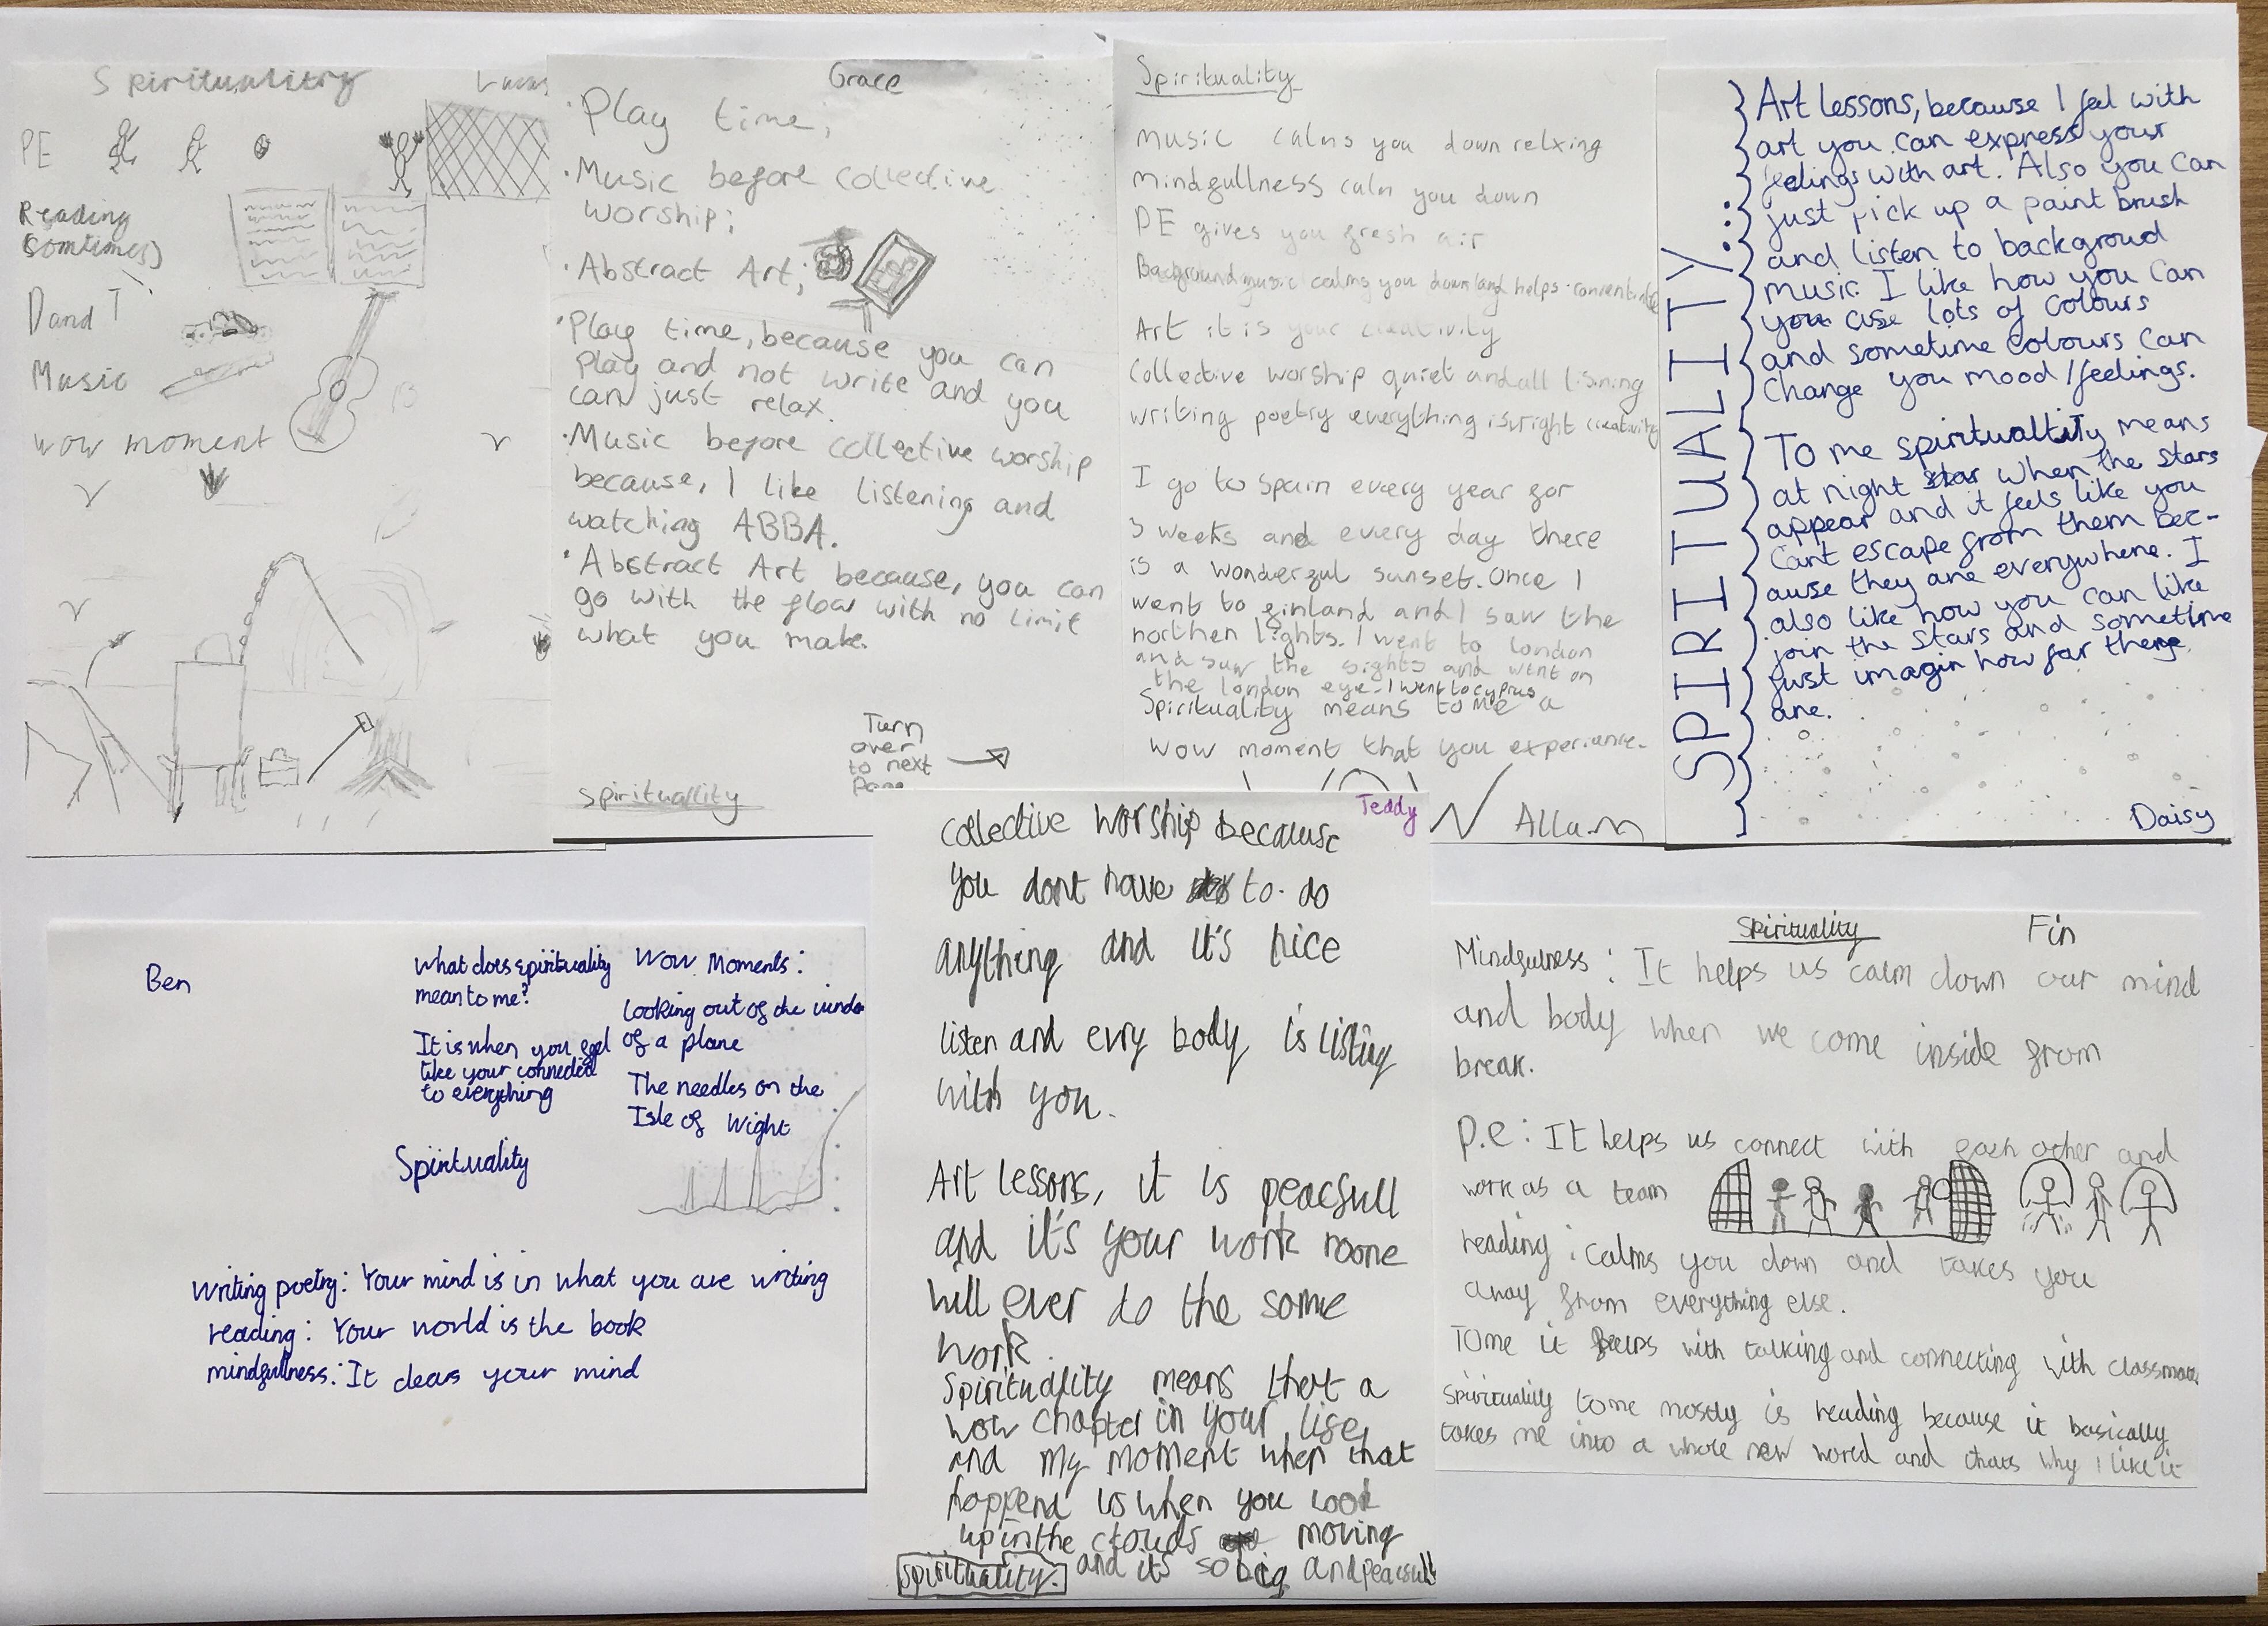 Spirituality
PE
Reading
(somtimes)
D and T
Music
wow moment
Grace
· Play time;
· Music before collective
worship;
· Abstract Art;
· Play time, because you can
Play and not write and you
can just relax.
· Music before collective worship
because, I like listening and
watching ABBA.
· Abstract Art because, you can
go with the flow with no limit
what you make.
Turn
over
to next
Page
Spirituallity
Spirituality
music calms you down relxing
mindfullness calm you down
PE gives you fresh air
Background music calms you down and helps
Art it is your creativity
Collective worship quiet and all lisning
writing poetry everything is wright creativity
I go to Spain every year for
3 weeks and every day there
is a wonderful sunset. Once I
went to finland and I saw the
northen lights. I went to london
and saw the sights and went on
the london eye. I went to cyprus
Spirituality means to me a
wow moment that you experiance.
Allum
SPIRITUALITY:
Art lessons, because I feel with
art you can express your
feelings with art. Also you can
just pick up a paint brush
and listen to backgroud
music. I like how you can
you use lots of colours
and sometime colours can
change you mood/feelings.
To me spirituality means
at night star when the stars
appear and it feels like you
cant escape from them bec-
ause they are everywhere. I
also like how you can like
join the stars and sometime
just imagin how far there
are.
Daisy
Ben
What does spirituality
mean to me?
It is when you feel
like your connected
to everything
Wow Moments:
Looking out of the window
of a plane
The needles on the
Isle of Wight
Spirituality
writing poetry: Your mind is in what you are writing
reading: Your world is the book
mindfullness: It clears your mind
Teddy
collective worship because
you dont have to do
anything and it's nice
listen and evry body is listing
with you.
Art lessons, it is peacfull
and it's your work noone
will ever do the same
work.
Spirituality means that a
wow chapter in your life
and my moment when that
happend is when you look
up in the clouds moving
and it's so big and peacfull
Spirituality.
Spirituality
Fin
Mindfulness: It helps us calm down our mind
and body when we come inside from
break.
p.e: It helps us connect with each other and
work as a team
reading: calms you down and takes you
away from everything else.
TOme it helps with talking and connecting with classmates
spirituality tome mostly is reading because it basically
takes me into a whole new world and thats why I like it